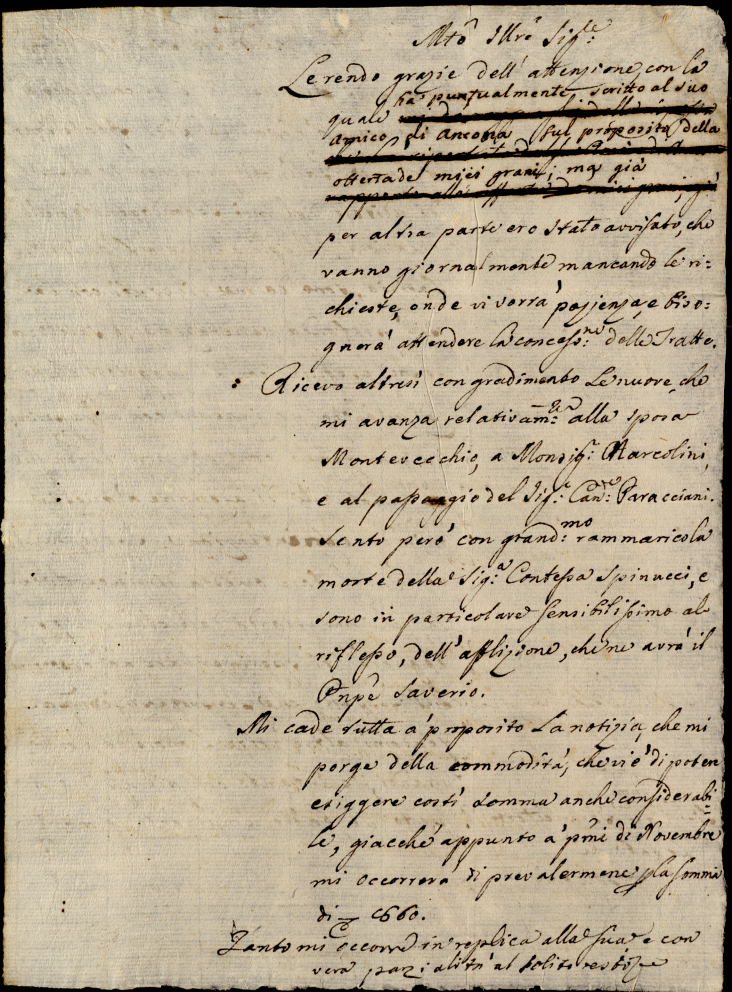 Mtõ Illrẽ Sig.re
Le rendo grazie dell' attenzione, con la
quale ha puntualmente scritto al suo
amico di Ancona sul proposito della
offerta dei miei grani; ma già
per altra parte ero stato avvisato, che
vanno giornalmente mancando le ri:
chieste, onde vi vorrà pazienza, e biso:
gnerà attendere la concess.ne delle Tratte.
Ricevo altresì con gradimento le nuove, che
mi avanza relativam.te alla sposa
Montevecchio, a Monsig.r Marcolini,
e al passaggio del Sig.e Can.co Paracciani.
Sento però con grand.mo rammarico la
morte della Sig.a Contessa Spinucci, e
sono in particolare sensibilissimo al
riflesso, dell' afflizione, che ne avrà il
Pnpẽ Saverio.
Mi cade tutta a proposito la notizia, che mi
porge della commodità, che vi è di poter
esiggere costì somma anche considerabi=
le, giacchè appunto a' pmi di Novembre
mi occorrerà di prevalermene p la somma
di 660.
Tanto mi occorre in replica alla sua e con
vera parzialità al solito resto